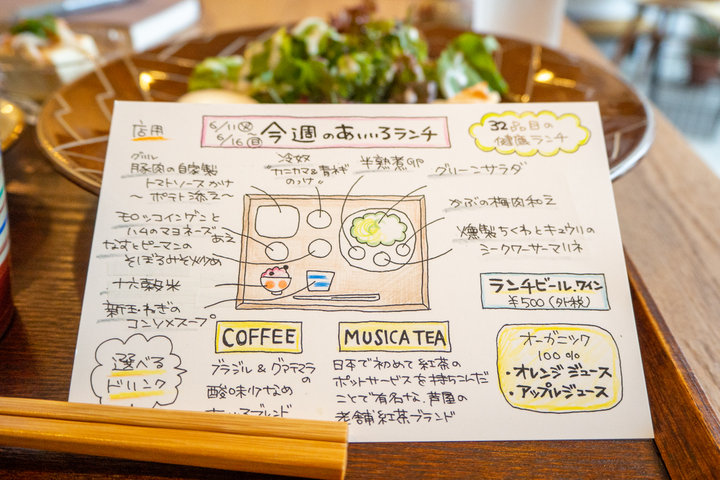 店用
6/11(火)
6/16(日)
今週のあいいろランチ
32品目の
健康ランチ
グリル
豚肉の自家製
トマトソースかけ
〜ポテト添え〜
冷奴
カニカマ&青ネギ
のっけ
半熟煮卵
グリーンサラダ
モロッコインゲンと
ハムのマヨネーズあえ
なすとピーマンの
そぼろみそ炒め
十六穀米
新玉ねぎの
コンソメスープ
かぶの梅肉和え
燻製ちくわとキュウリの
シークワーサーマリネ
ランチビール、ワイン
¥500(外税)
選べる
ドリンク
COFFEE
ブラジル&グアテマラ
の
酸味少なめ
MUSICA TEA
日本で初めて紅茶の
ポットサービスを持ちこんだ
ことで有名な、芦屋の
老舗紅茶ブランド
オーガニック
100%
・オレンジジュース
・アップルジュース